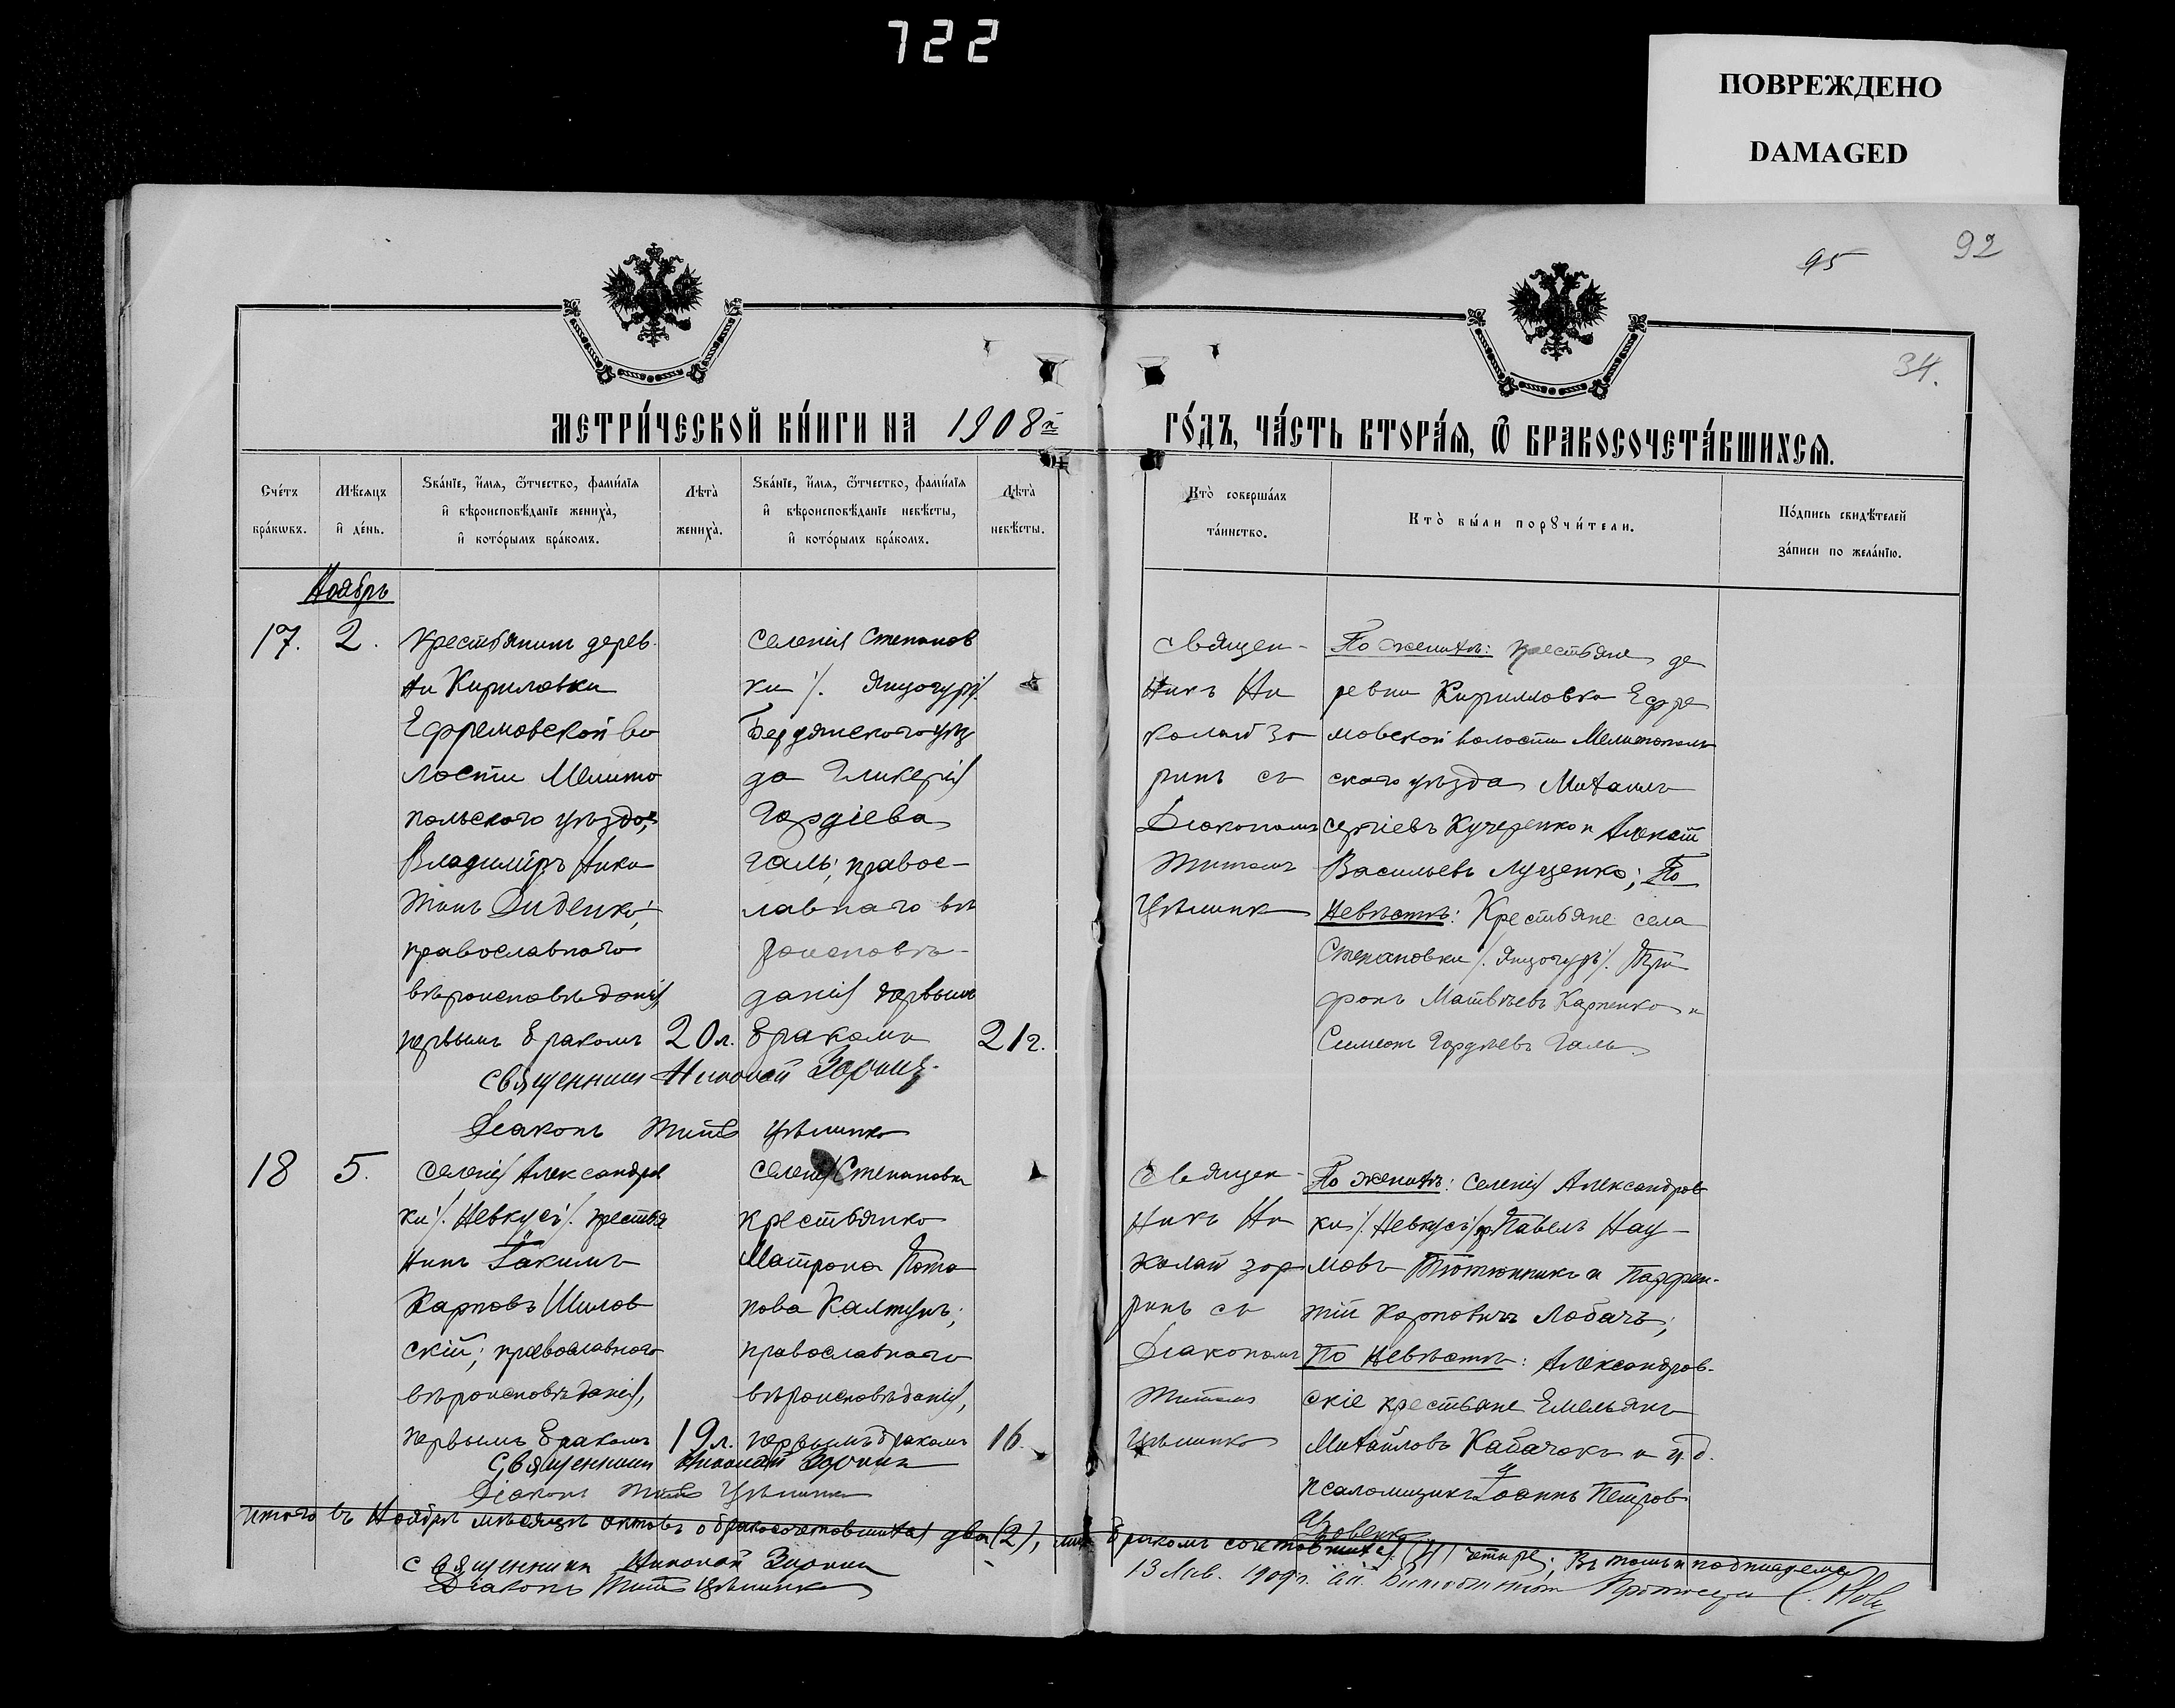 722
ПОВРЕЖДЕНО
DAMAGED
45
92
34.
МЕТРИ́ЧЕСКОЙ КНИ́ГИ НА 1908й
ГО́ДЪ, ЧА́СТЬ ВТОРА́Я, Ѿ БРАКОСОЧЕТА́ВШИХСЯ.
Сче́тъ
бра́кѡвъ.
Мѣ́сяцъ
и҆ де́нь.
Ѕва́нїе, и҆́мя, ѻ҆́тчество, фами́лїя
и҆ вѣроисповѣ́данїе жениха̀,
и҆ кото́рымъ бра́комъ.
Лѣта̀
жениха̀.
Ѕва́нїе, и҆́мя, ѻ҆́тчество, фами́лїя
и҆ вѣроисповѣ́данїе невѣ́сты,
и҆ кото́рымъ бра́комъ.
Лѣта̀
невѣ́сты.
Кто̀ соверша́лъ
та́инство.
Кто̀ бы́ли порꙋчи́тели.
По́дпись свидѣ́телей
за́писи по жела́нїю.
Ноябрь
17.
2.
Крестьянинъ дерев
ни Кириловки
Ефремовской во
лости Мелито
польского уѣзда,
Владиміръ Ники
тинъ Диденко,
православнаго
вѣроисповѣданія
первымъ бракомъ
20 л.
Селенія Степанов
ки /.
Бердянскаго уѣз
да Гликерія
Гордіева
Галь; правос-
лавнаго вѣ
роисповѣ-
данія первымъ
бракомъ
21 г.
Священникъ Николай Зоринъ
Діаконъ Титъ Цѣлинко
Священ-
никъ Ни
колай Зо
ринъ съ
Діакономъ
Титомъ
Цѣлинко
По женихѣ: Крестьяне де
ревни Кирилловки Ефре
мовской волости Мелитополь
скаго уѣзда Михаилъ
Сергіевъ Кучеренко и Алексѣй
Васильевъ Луценко; По
Невѣстѣ: Крестьяне села
Степановки /.
фонъ Матвѣевъ Карпенко и
Симеонъ Гордѣевъ Галь
18
5.
Селенія Александров
ки /. Невкусъ /. крестья
нинъ Іакимъ
Карповъ Шилов
скій; православнаго
вѣроисповѣданія,
первымъ бракомъ
19 л.
Селенія Степановки
крестьянка
Матрона Пота
пова Калтунъ;
православнаго
вѣроисповѣданія,
первымъ бракомъ
16.
Священникъ Николай Зоринъ
Діаконъ Титъ Цѣлинко
Священ-
никъ Ни
колай Зор
ринъ съ
Діакономъ
Титомъ
Цѣлинко
По женихѣ: Селенія Александров
ки /. Невкусъ /. Павелъ Нау-
мовъ Тютюнникъ и Парфен-
тій Карповичъ Лобачъ;
По Невѣстѣ: Александров-
скіе крестьяне Емельянъ
Михайловъ Кабачокъ и и. д.
псаломщика Іоаннъ Петров
Итого въ Ноябрѣ мѣсяцѣ актовъ о бракосочетавшихся два (2), бракомъ сочетавшихся (4) четыре; Въ томъ и подписуемся
Священникъ Николай Зоринъ
Діаконъ Титъ Цѣлинко
13 Янв. 1909 г.